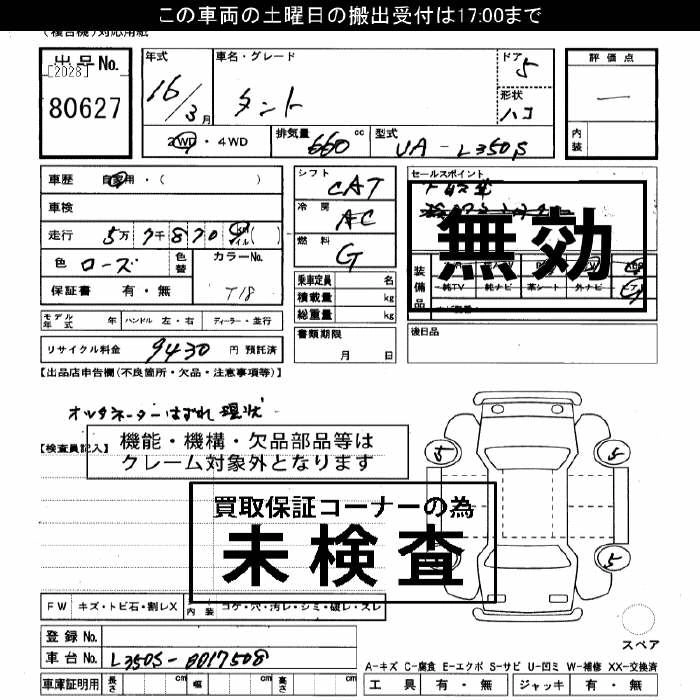 この車両の土曜日の搬出受付は17:00まで
(複合機)対応用紙
出品No.
[2028]
80627
年式
16/3月
車名・グレード
タント
ドア
5
形状
ハコ
評価点
一
内装
2WD・4WD
排気量
660 cc
型式
UA-L350S
車歴 自家用・( )
車検
走行 5万7千870
色 ローズ
色替
カラーNo.
T18
保証書 有・無
モデル年式 年 ハンドル 左・右 ディーラー・並行
リサイクル料金 9430 円 預託済
シフト
CAT
冷房
AC
燃料
G
乗車定員 名
積載量 kg
総重量 kg
書類期限
月 日
セールスポイント
無効
装備品
純TV 純ナビ 革シート 外ナビ エアB
後日品
【出品店申告欄(不良箇所・欠品・注意事項等)】
オルタネーターはずれ 現状
【検査員記入】
機能・機構・欠品部品等は
クレーム対象外となります
買取保証コーナーの為
未検査
5
5
5
FW キズ・トビ石・割レX 内装 コゲ・穴・汚レ・シミ・破レ・スレ
スペア
登録No.
車台No. L350S-0017508
車庫証明用 長さ cm 幅 cm 高さ cm
A-キズ C-腐食 E-エクボ S-サビ U-凹ミ W-補修 XX-交換済
工具 有・無 ジャッキ 有・無